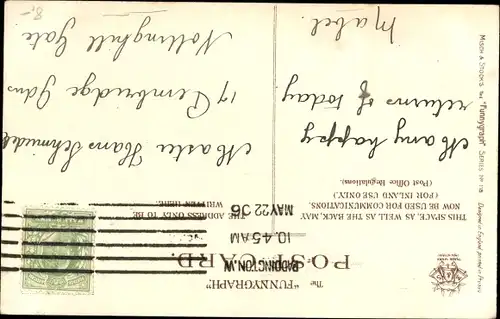 The "FUNNYGRAPH"
POST CARD.
THIS SPACE, AS WELL AS THE BACK MAY
NOW BE USED FOR COMMUNICATIONS.
(FOR INLAND USE ONLY.)
(Post Office Regulations).
THE ADDRESS ONLY TO BE
WRITTEN HERE.
PADDINGTON. W.
10.45 AM
MAY 22 06
Many happy
returns of today
Mabel.
Master Hans Schmidel
17 Pembridge Gdns
Notting hill Gate
MISCH & STOCK'S the "Funnygraph" SERIES Nº 118
Designed in England, printed in Prussia
8,-